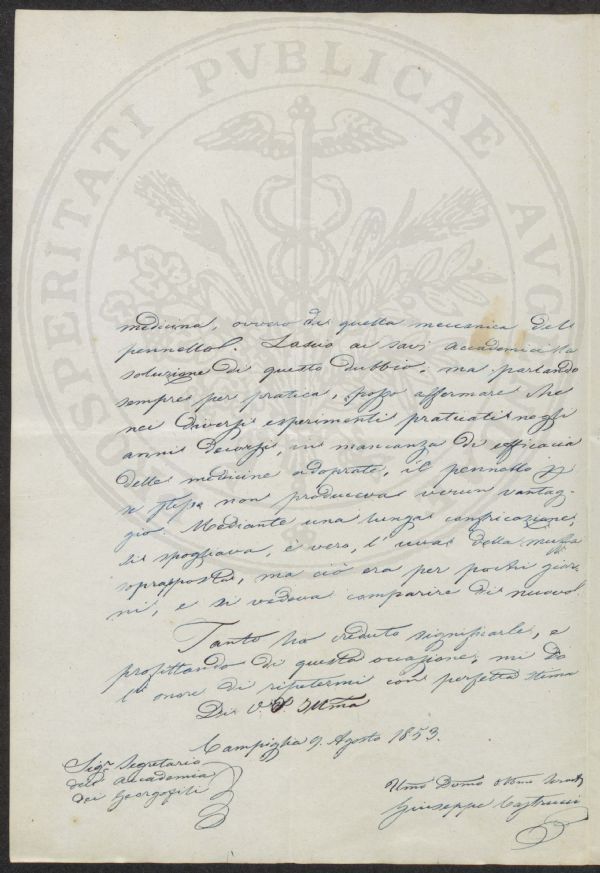 PROSPERITATI PVBLICAE AVG
medicina, ovvero di quella meccanica del
pennello. Lascio ai savj accademici la
soluzione di questo dubbio, ma parlando
sempre per pratica, posso affermare che
nei diversi esperimenti praticati negli
anni decorsi, in mancanza di efficacia
delle medicine adoprate, il pennello per
se stesso non produceva verun vantag-
gio. Mediante una lunga confricazione,
si spogliava, è vero, l'uva della muffa
soprapposta, ma ciò era per pochi gior-
ni, e si vedeva comparire di nuovo.
Tanto ho creduto significarle, e
profittando di questa occasione, mi do
l'onore di ripetermi con perfetta stima
Di V. S. Illma
Campiglia 9. Agosto 1853.
Sigr Segretario
dell' Accademia
dei Georgofili
Umo Devmo
Giuseppe Castrucci